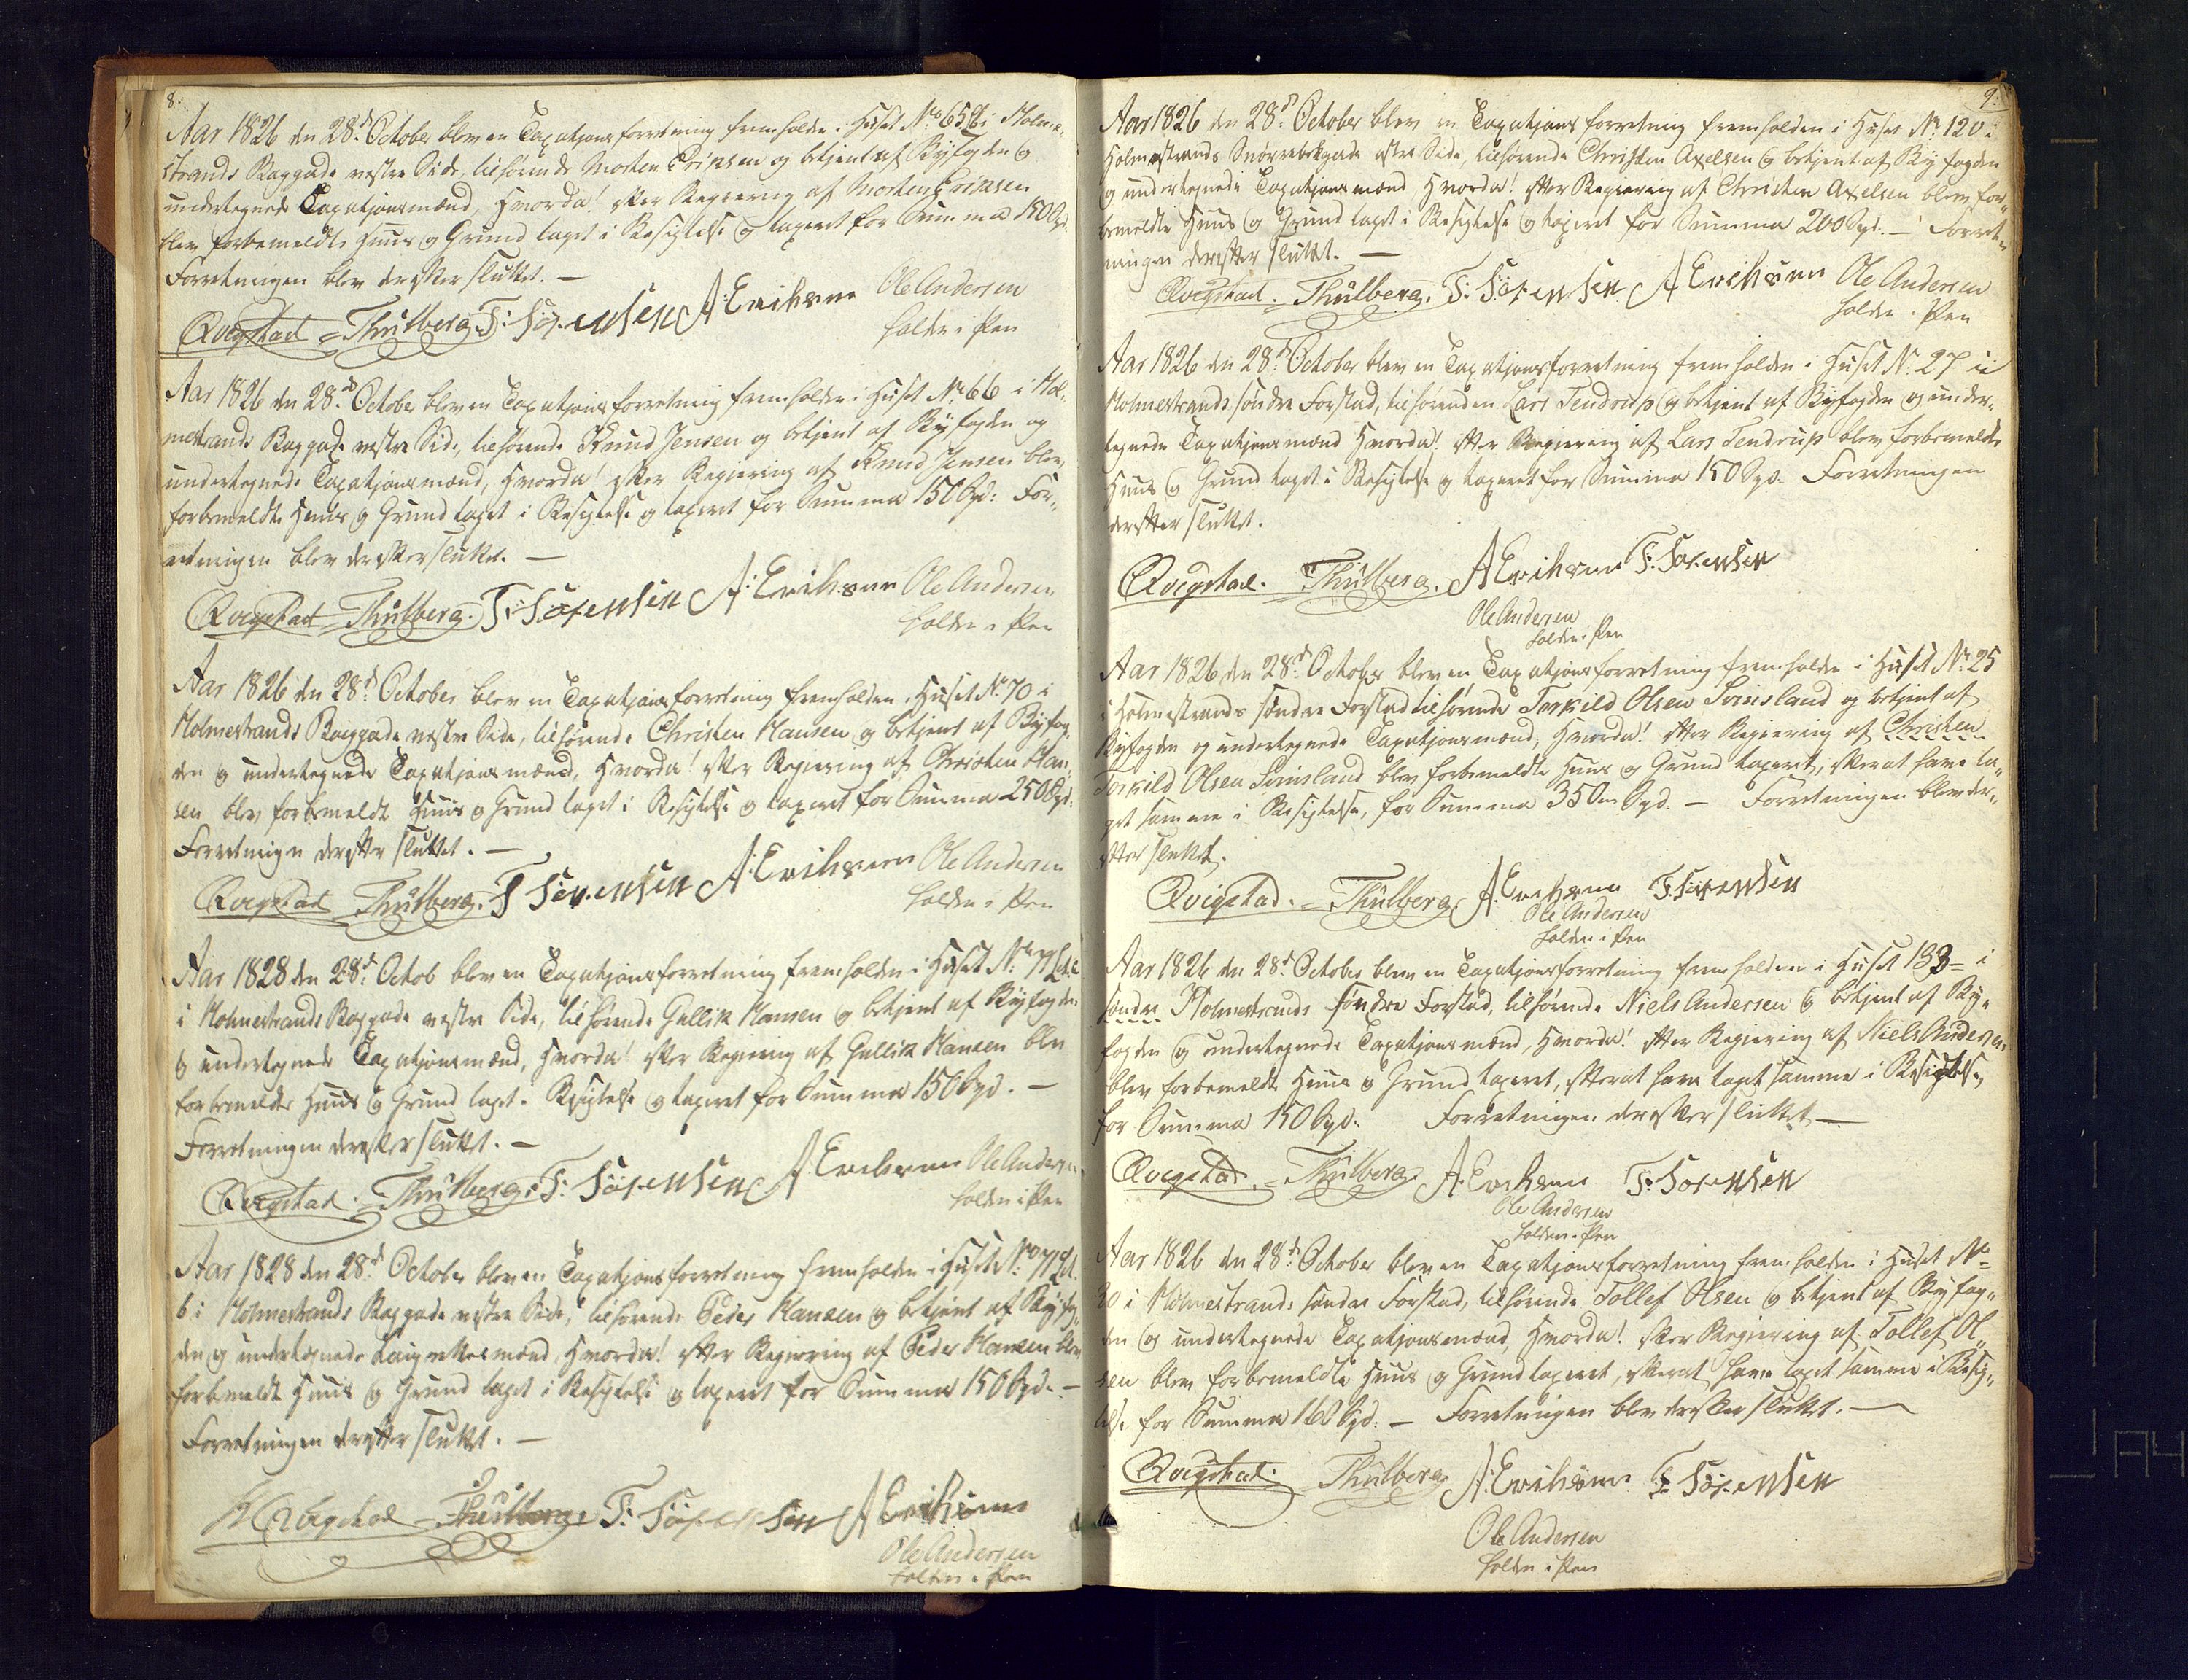 8.
Aar 1826 den 28d October blev en Taxationsforretning fremholden i Huset No 65 b i Holme-
strands Baggade vestre Side, tilhørende Morten Erichsen og betjent af Byfogden og
undertegnede Taxationsmænd, Hvorda! efter Reqviering af Morten Erichsen
blev forbemeldte Huus og Grund taget i Besigtelse og taxeret for Summa 150 Spd.
Forretningen blev derefter sluttet. —
Qvigstad Thulberg. F: Sörensen A: Erichsen Ole Andersen
holden i Pen
Aar 1826 den 28d October blev en Taxationsforretning fremholden i Huset No 66 i Hol-
mestrands Baggade vestre Side, tilhørende Knud Jensen og betjent af Byfogden og
undertegnede Taxationsmænd, Hvorda! efter Reqviering af Knud Jensen blev
forbemeldte Huus og Grund taget i Besigtelse og taxeret for Summa 150 Spd: For-
retningen blev derefter sluttet. —
Qvigstad Thulberg. F: Sörensen A: Erichsen Ole Andersen
holden i Pen
Aar 1826 den 28d October blev en Taxationsforretning fremholden i Huset No 70 i
Holmestrands Baggade vestre Side, tilhørende Christen Hansen og betjent af Byfog-
den og undertegnede Taxationsmænd, Hvorda! efter Reqviering af Christen Han-
sen blev forbemeldte Huus og Grund taget i Besigtelse og taxeret for Summa 250 Spd:
Forretningen derefter sluttet. —
Qvigstad Thulberg. F Sörensen A: Erichsen Ole Andersen
holden i Pen
Aar 1828 den 28d Octob blev en Taxationsforretning fremholden i Huset No 71
i Holmestrands Baggade vestre Side, tilhørende Gullik Hansen og betjent af Byfogden
og undertegnede Taxationsmænd, Hvorda! efter Reqviering af Gullik Hansen blev
forbemeldte Huus og Grund taget i Besigtelse og taxeret for Summa 150 Spd. —
Forretningen derefter sluttet. —
Qvigstad. Thulberg. F: Sörensen A Erichsen Ole Andersen
holden i Pen
Aar 1828 den 28d October blev en Taxationsforretning fremholden i Huset No 71
b i Holmestrands Baggade vestre Side, tilhørende Peder Hansen og betjent af Byfog-
den og undertegnede Laugrettesmænd, Hvorda! efter Reqviering af Peder Hansen blev
forbemeldte Huus og Grund taget i Besigtelse og taxeret for Summa 150 Spd. —
Forretningen derefter sluttet. —
Qvigstad Thulberg. F: Sörensen A Erichsen
Ole Andersen
holden i Pen
9.
Aar 1826 den 28d October blev en Taxationsforretning fremholden i Huset No 120 i
Holmestrands Snørrebekgade østre Side, tilhørende Christen Axelsen og betjent af Byfogden
og undertegnede Taxationsmænd, Hvorda! efter Reqviering af Christen Axelsen blev for-
bemeldte Huus og Grund taget i Besigtelse og taxeret for Summa 200 Spd. — Forret-
ningen derefter sluttet. —
Qvigstad. Thulberg. F: Sörensen A Erichsen Ole Andersen
holden i Pen
Aar 1826 den 28d October blev en Taxationsforretning fremholden i Huset No 27 i
Holmestrands søndre Forstad, tilhørenden Lars Tendrup og betjent af Byfogden og under-
tegnede Taxationsmænd Hvorda! efter Reqviering af Lars Tendrup blev forbemeldte
Huus og Grund taget i Besigtelse og taxeret for Summa 150 Spd. Forretningen
derefter sluttet.
Qvigstad. Thulberg. A Erichsen F: Sörensen
Ole Andersen
holden i Pen
Aar 1826 den 28d October blev en Taxationsforretning fremholden i Huset No 25
i Holmestrands søndre Forstad tilhørende Torkild Olsen Svinsland og betjent af
Byfogden og undertegnede Taxationsmænd, Hvorda! efter Reqviering af Christen
Torkild Olsen Svinsland blev forbemeldte Huus og Grund taxeret, efterat have ta-
get samme i Besigtelse, for Summa 350 Spd. — Forretningen blev der-
efter sluttet.
Qvigstad. Thulberg. A: Erichsen F: Sörensen
Ole Andersen
holden i Pen
Aar 1826 den 28d October blev en Taxationsforretning fremholden i Huset 133 i
søndre Holmestrands søndre Forstad, tilhørende Niels Andersen og betjent af By-
fogden og undertegnede Taxationsmænd, Hvorda! efter Reqviering af Niels Andersen
blev forbemeldte Huus og Grund taxeret, efterat have taget samme i Besigtelse,
for Summa 150 Spd: Forretningen derefter sluttet —
Qvigstad. Thulberg. A: Erichsen F: Sörensen
Ole Andersen
holden i Pen
Aar 1826 den 28d October blev en Taxationsforretning fremholden i Huset No
20 i Holmestrands søndre Forstad, tilhørende Tollef Olsen og betjent af Byfog-
den og undertegnede Taxationsmænd, Hvorda! efter Reqviering af Tollef Ol-
sen blev forbemeldte Huus og Grund taxeret, efterat have taget samme i Besig-
telse for Summa 160 Spd: — Forretningen blev derefter sluttet. —
Qvigstad. Thulberg A: Erichsen F: Sörensen
Ole Andersen
holden i Pen